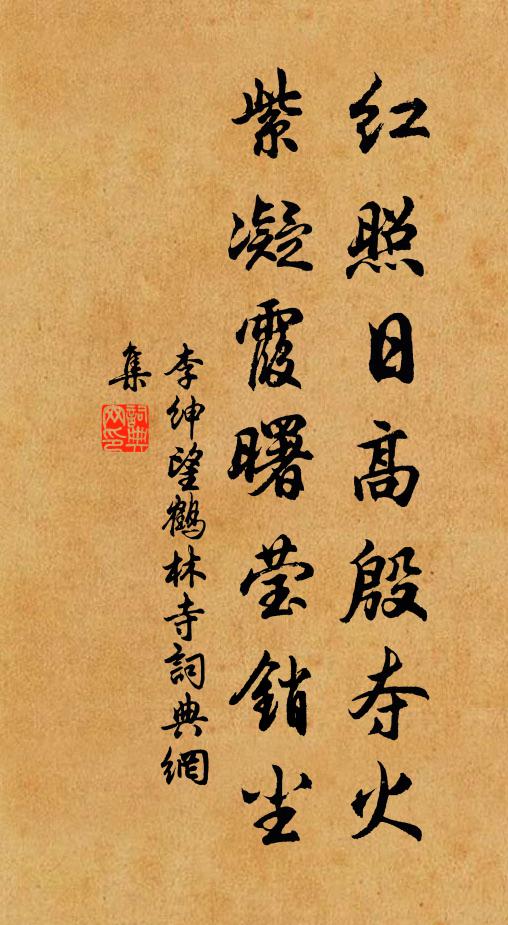 红照日高殷夺火
紫凝霞曙莹销尘
李绅望鹤林寺詞典網
集
詞典
网印